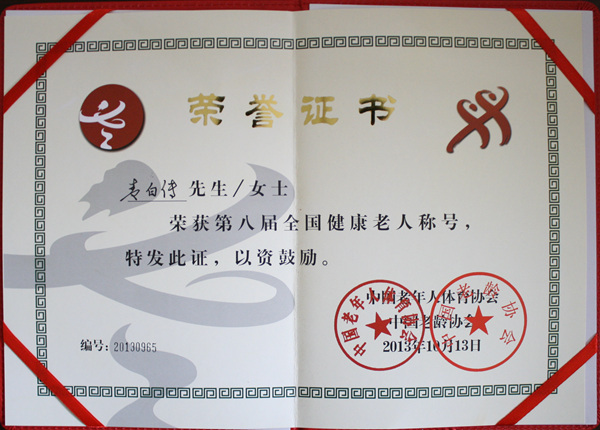 荣誉证书
袁白传先生/女士
荣获第八届全国健康老人称号，
特发此证，以资鼓励。
中国老年人体育协会
中国老龄协会
编号：20130965
2013年10月13日
中国老年人体育协会
中国老龄协会